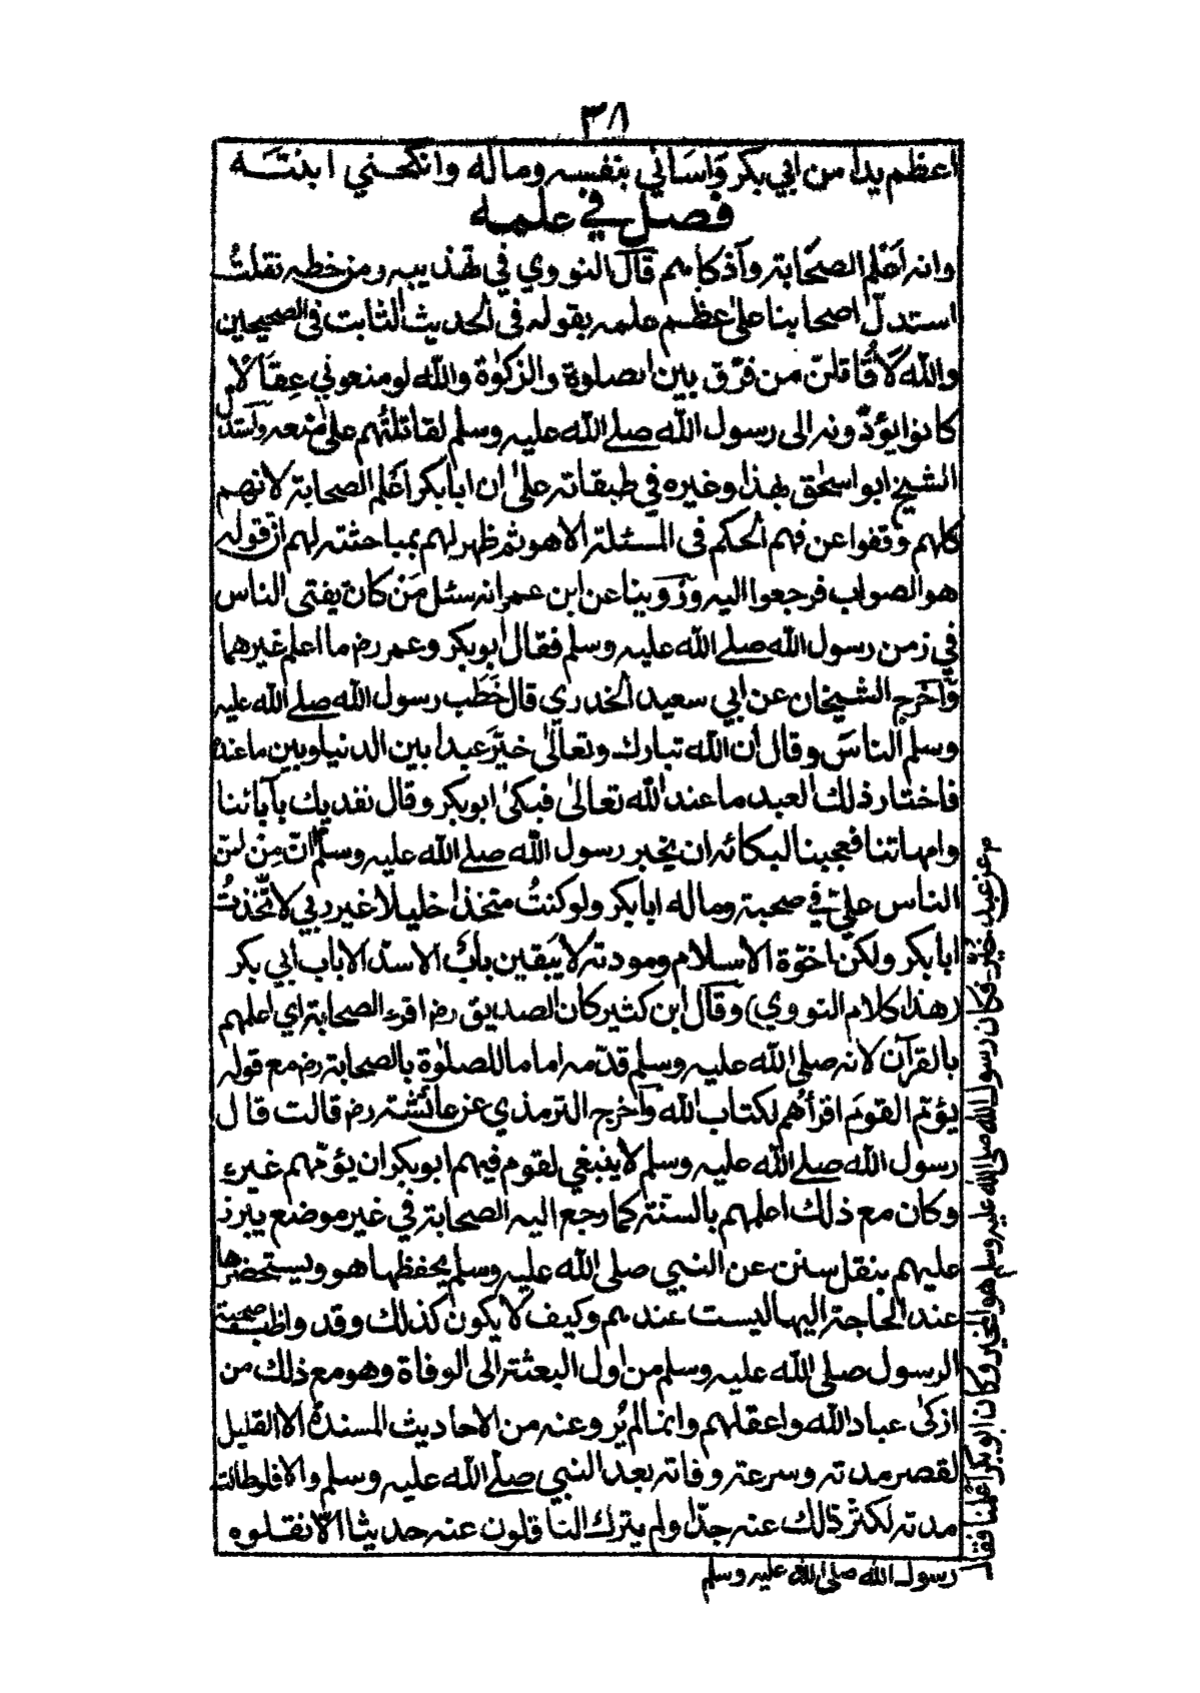 ٣٨
اعظم يدا من ابي بكر وَاسَاني بنفسه وماله وانكحني ابنته
فصل في علمه
وانه اَعْلم الصحَابة وآذكاهم قال النووي في تهذيبه ومن خطه نقلتُ
استدلّ اصحابنا على عظم علمه بقوله في الحديث الثابت فى الصحيحين
والله لَاُقَاتلنّ من فرّق بين الصلوة والزكوٰة والله لو منعوني عِقَالًا
كانوا يؤدّونه الى رسول الله صلے الله عليه وسلم لقاتلتُهم على منعه واستدل
الشيخ ابو اسحٰق بهذا وغيره في طبقاته على ان ابا بكر اَعْلم الصحابة لانهم
كلهم وقفوا عن فهم الحكم فى المسئلة الا هو ثم ظهر لهم بمباحثته لهم ان قوله
هو الصواب فرجعوا اليه ورَوَينا عن ابن عمر انه سئل مَن كان يفتى الناس
في زمن رسول الله صلے الله عليه وسلم فقال ابو بكر وعمر رض ما اعلم غيرهما
وآخرج الشيخان عن ابي سعيد الخدري قال خَطَب رسول الله صلے الله عليه
وسلم الناسَ وقال ان الله تبارك وتعالىٰ خيّر عبدا بين الدنيا وبين ما عنده
فاختار ذلك العبد ما عند الله تعالىٰ فبكىٰ ابو بكر وقال نفديك بآبائنا
وامهاتنا فعجبنا لبكائه ان يخبر رسول الله صلے الله عليه وسلم م انّ مِنْ امنّ
الناس عليّ في صحبته وماله ابا بكر ولو كنتُ متخذا خليلا غير ربي لاتّخذتُ
ابا بكر ولكن اخوّة الاسلام ومودته لا يَبقين باب الا سدّ الا باب ابي بكر
(هذا كلام النووي) وقال ابن كثير كان الصديق رض اقرء الصحابة اي اعلمهم
بالقرآن لانه صلى الله عليه وسلم قدّمه اماما للصلوٰة بالصحابة رض مع قوله
يؤمّ القومَ اقرأهُم لكتاب الله وآخرج الترمذي عن عائشة رض قالت قال
رسول الله صلے الله عليه وسلم لا ينبغي لقوم فيهم ابو بكر ان يؤمّهم غيره
وكان مع ذلك اعلمهم بالسنّة كما رجع اليه الصحابة في غير موضع يبرز
عليهم بنقل سنن عن النبي صلى الله عليه وسلم يحفظها هو ويستحضرها
عند الحاجة اليها ليست عندهم وكيف لا يكون كذلك وقد واظب صحبة
الرسول صلى الله عليه وسلم من اول البعثة الى الوفاة وهو مع ذلك من
ازكىٰ عباد الله واعقلهم وانما لم يُرو عنه من الاحاديث المسندة الا القليل
لقصر مدته وسرعة وفاته بعد النبي صلے الله عليه وسلم والا فلو طالت
مدته لكثر ذلك عنه جدّا ولم يترك الناقلون عنه حديثا الّا نقلوه
م عن عبد خيّر فكان رسول الله صلى الله عليه وسلم هو المخير وكان ابو بكر اعلمنا فقال
رسول الله صلى الله عليه وسلم